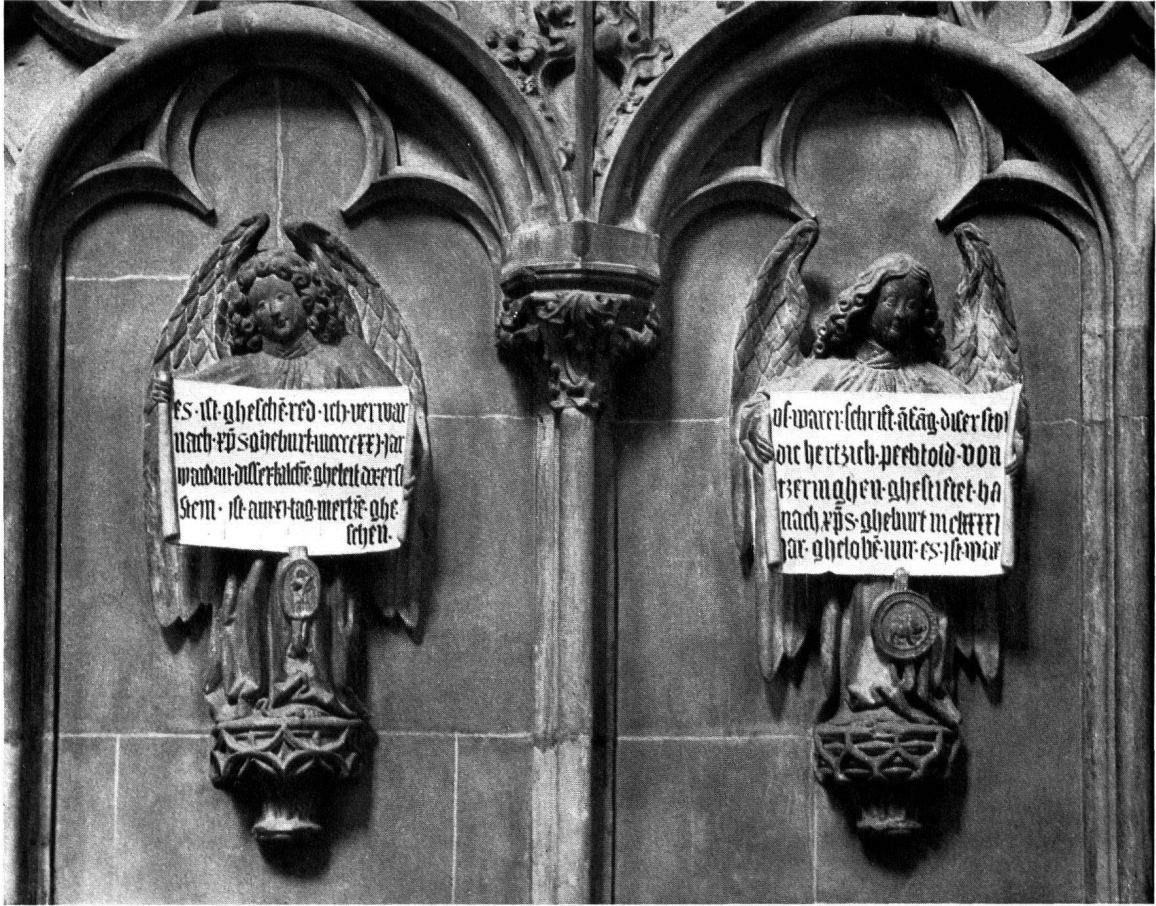 es·ist·gheschē·red·ich·verwar
nach·xp̄s·gheburt·mccccxxi·jar
ward·an·disser·kilchē·gheleit·der·erst
Stein·ist·am·xi·tag·mertzē·ghe
schen.
vs·warer·schrift·āfāg·diser stat
die hertzich·perchtold·von
tzeringhen·ghestiftet·ha
nach xp̄s·gheburt mclxxxxi
jar·ghelobē·wir·es·ist·war